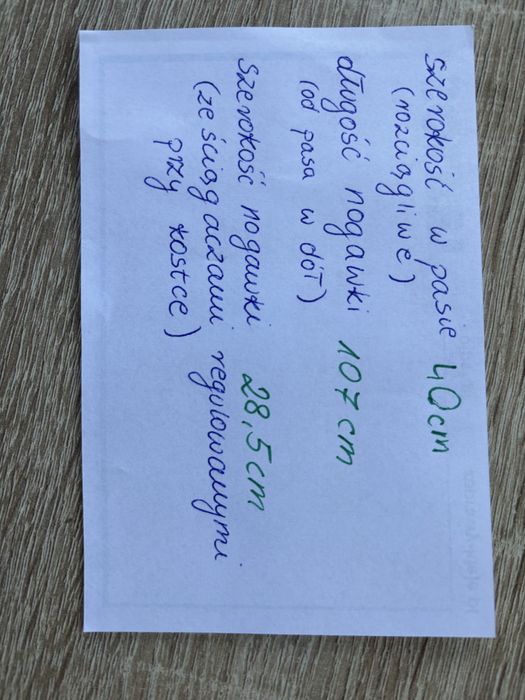 szerokość w pasie 40cm
(rozciągliwe)
długość nogawki 107cm
(od pasa w dół)
szerokość nogawki 28,5cm
(ze ściągaczami regulowanymi
przy kostce)